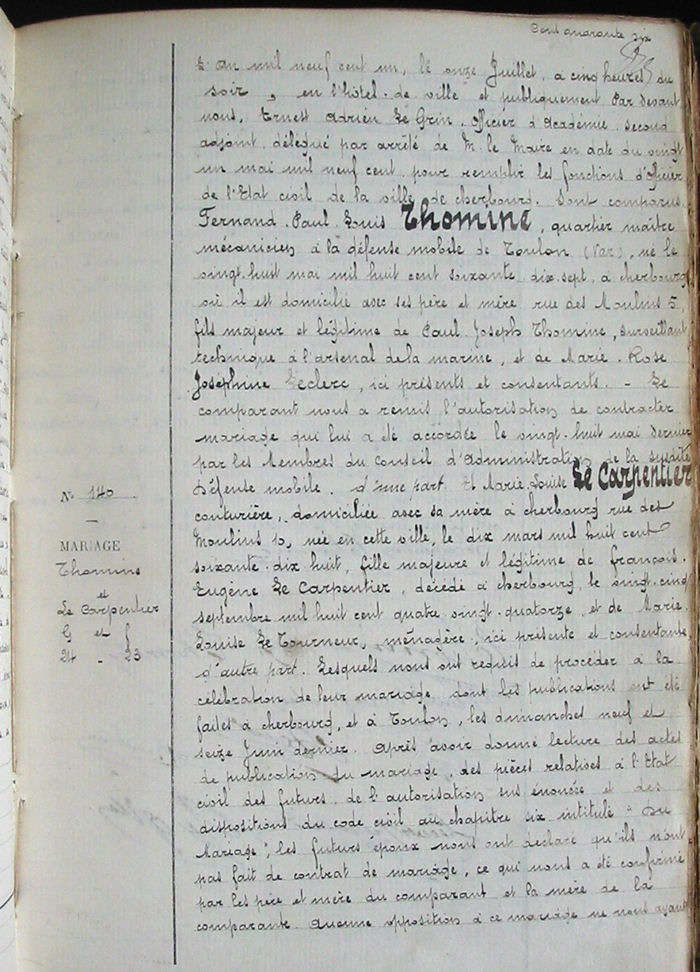 Cent quarante six
L'An mil neuf cent un, le onze Juillet, à cinq heures du
soir, en l'hôtel-de ville et publiquement Par devant
nous, Ernest Adrien Le Grin, Officier d'Académie, second
adjoint, délégué par arrêté de M. le Maire en date du vingt
un mai mil neuf cent, pour remplir les fonctions d'Officier
de l'Etat civil de la ville de Cherbourg. Sont comparus
Fernand Paul Louis Thomine, quartier maître
mécanicien à la défense mobile de Toulon (Var), né le
vingt-huit mai mil huit cent soixante dix-sept, à Cherbourg
où il est domicilié avec ses père et mère rue des Moulins 5,
fils majeur et légitime de Paul Joseph Thomine, surveillant
technique à l'arsenal de la marine, et de Marie Rose
Joséphine Leclerc, ici présents et consentants. - Le
comparant nous a remis l'autorisation de contracter
mariage qui lui a été accordée le vingt-huit mai dernier
par les Membres du Conseil d'Administration de la susdite
Défense mobile. d'une part. Et Marie Louise Le Carpentier
couturière, domiciliée avec sa mère à Cherbourg rue des
Moulins 10, née en cette ville, le dix mars mil huit cent
soixante-dix huit, fille majeure et légitime de François
Eugène Le Carpentier, décédé à Cherbourg, le vingt-cinq
septembre mil huit cent quatre vingt-quatorze et de Marie
Louise Le Tourneur, ménagère, ici présente et consentante,
d'autre part. Lesquels nous ont requis de procéder à la
célébration de leur mariage dont les publications ont été
faites à Cherbourg, et à Toulon, les dimanches neuf et
seize Juin dernier. Après avoir donné lecture des actes
de publication du mariage, des pièces relatives à l'Etat
civil des futurs, de l'autorisation sus énoncée et des
dispositions du code civil au chapitre six intitulé "Du
Mariage", les futurs époux nous ont déclaré qu'ils n'ont
pas fait de contrat de mariage, ce qui nous a été confirmé
par les père et mère du comparant et la mère de la
comparante. Aucune opposition à ce mariage ne nous ayant
N° 140
MARIAGE
Thomine
et
Le Carpentier
G et f
24 - 23